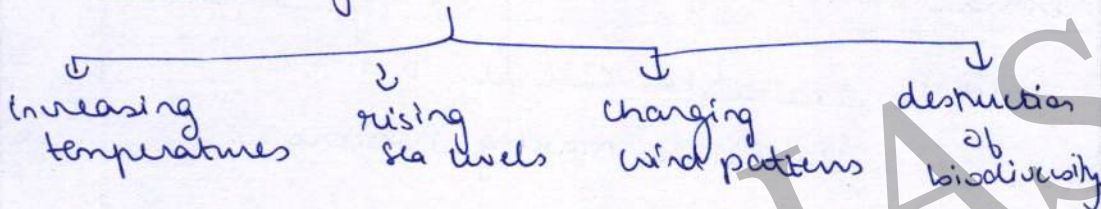 increasing temperatures
rising sea levels
changing wind patterns
destruction of biodiversity
IAS